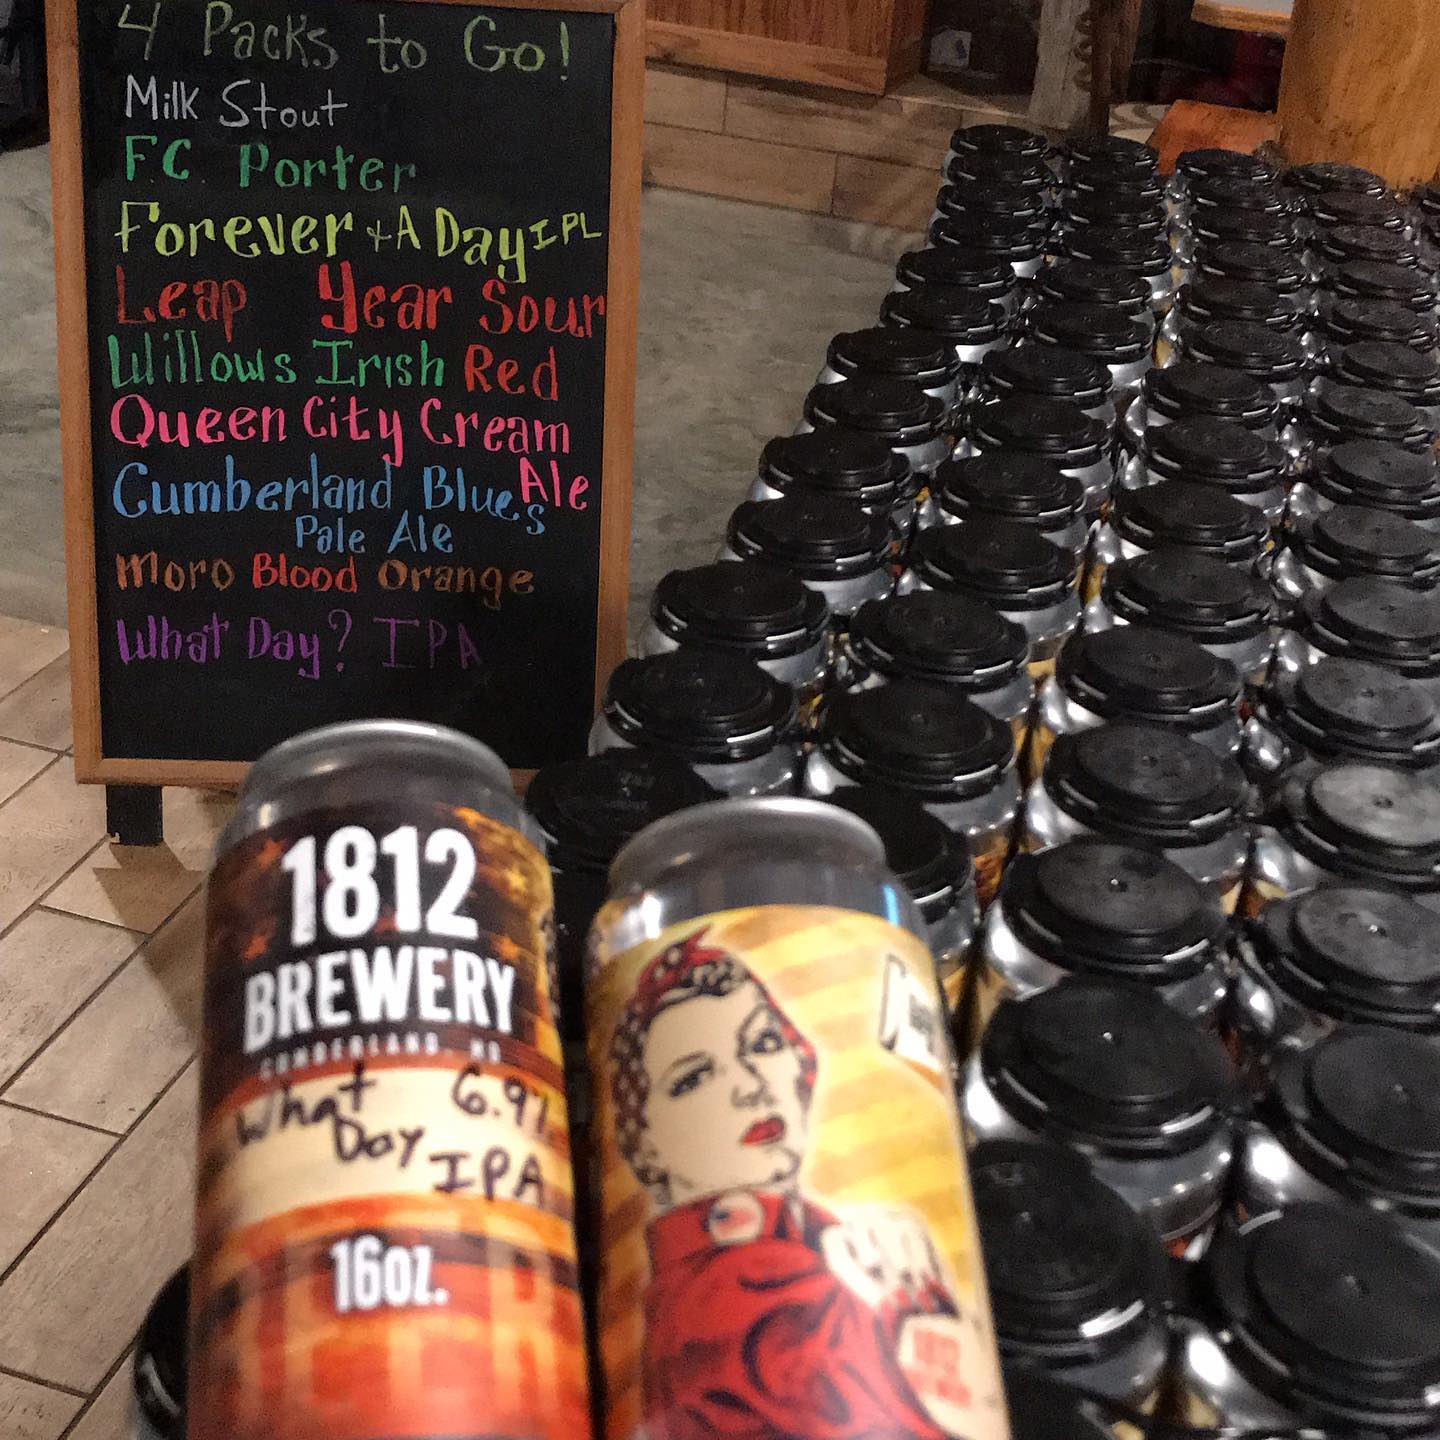 4 Packs to Go!
Milk Stout
F.C. Porter
Forever + A Day IPL
Leap Year Sour
Willows Irish Red
Queen City Cream
Ale
Cumberland Blues
Pale Ale
Moro Blood Orange
What Day? IPA
1812
BREWERY
CUMBERLAND, MD
What 6.9%
Day IPA
16oz.